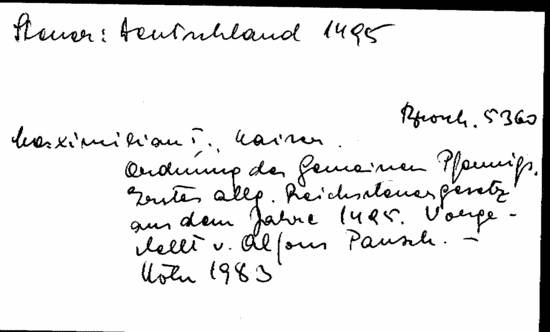 Steuer: Deutschland 1495
Brosch. 5360
Maximilian I., Kaiser.
Ordnung des Gemeinen Pfennigs.
Erstes allg. Reichssteuergesetz
aus dem Jahre 1495. Vorge-
stellt v. Alfons Pausch. –
Köln 1983